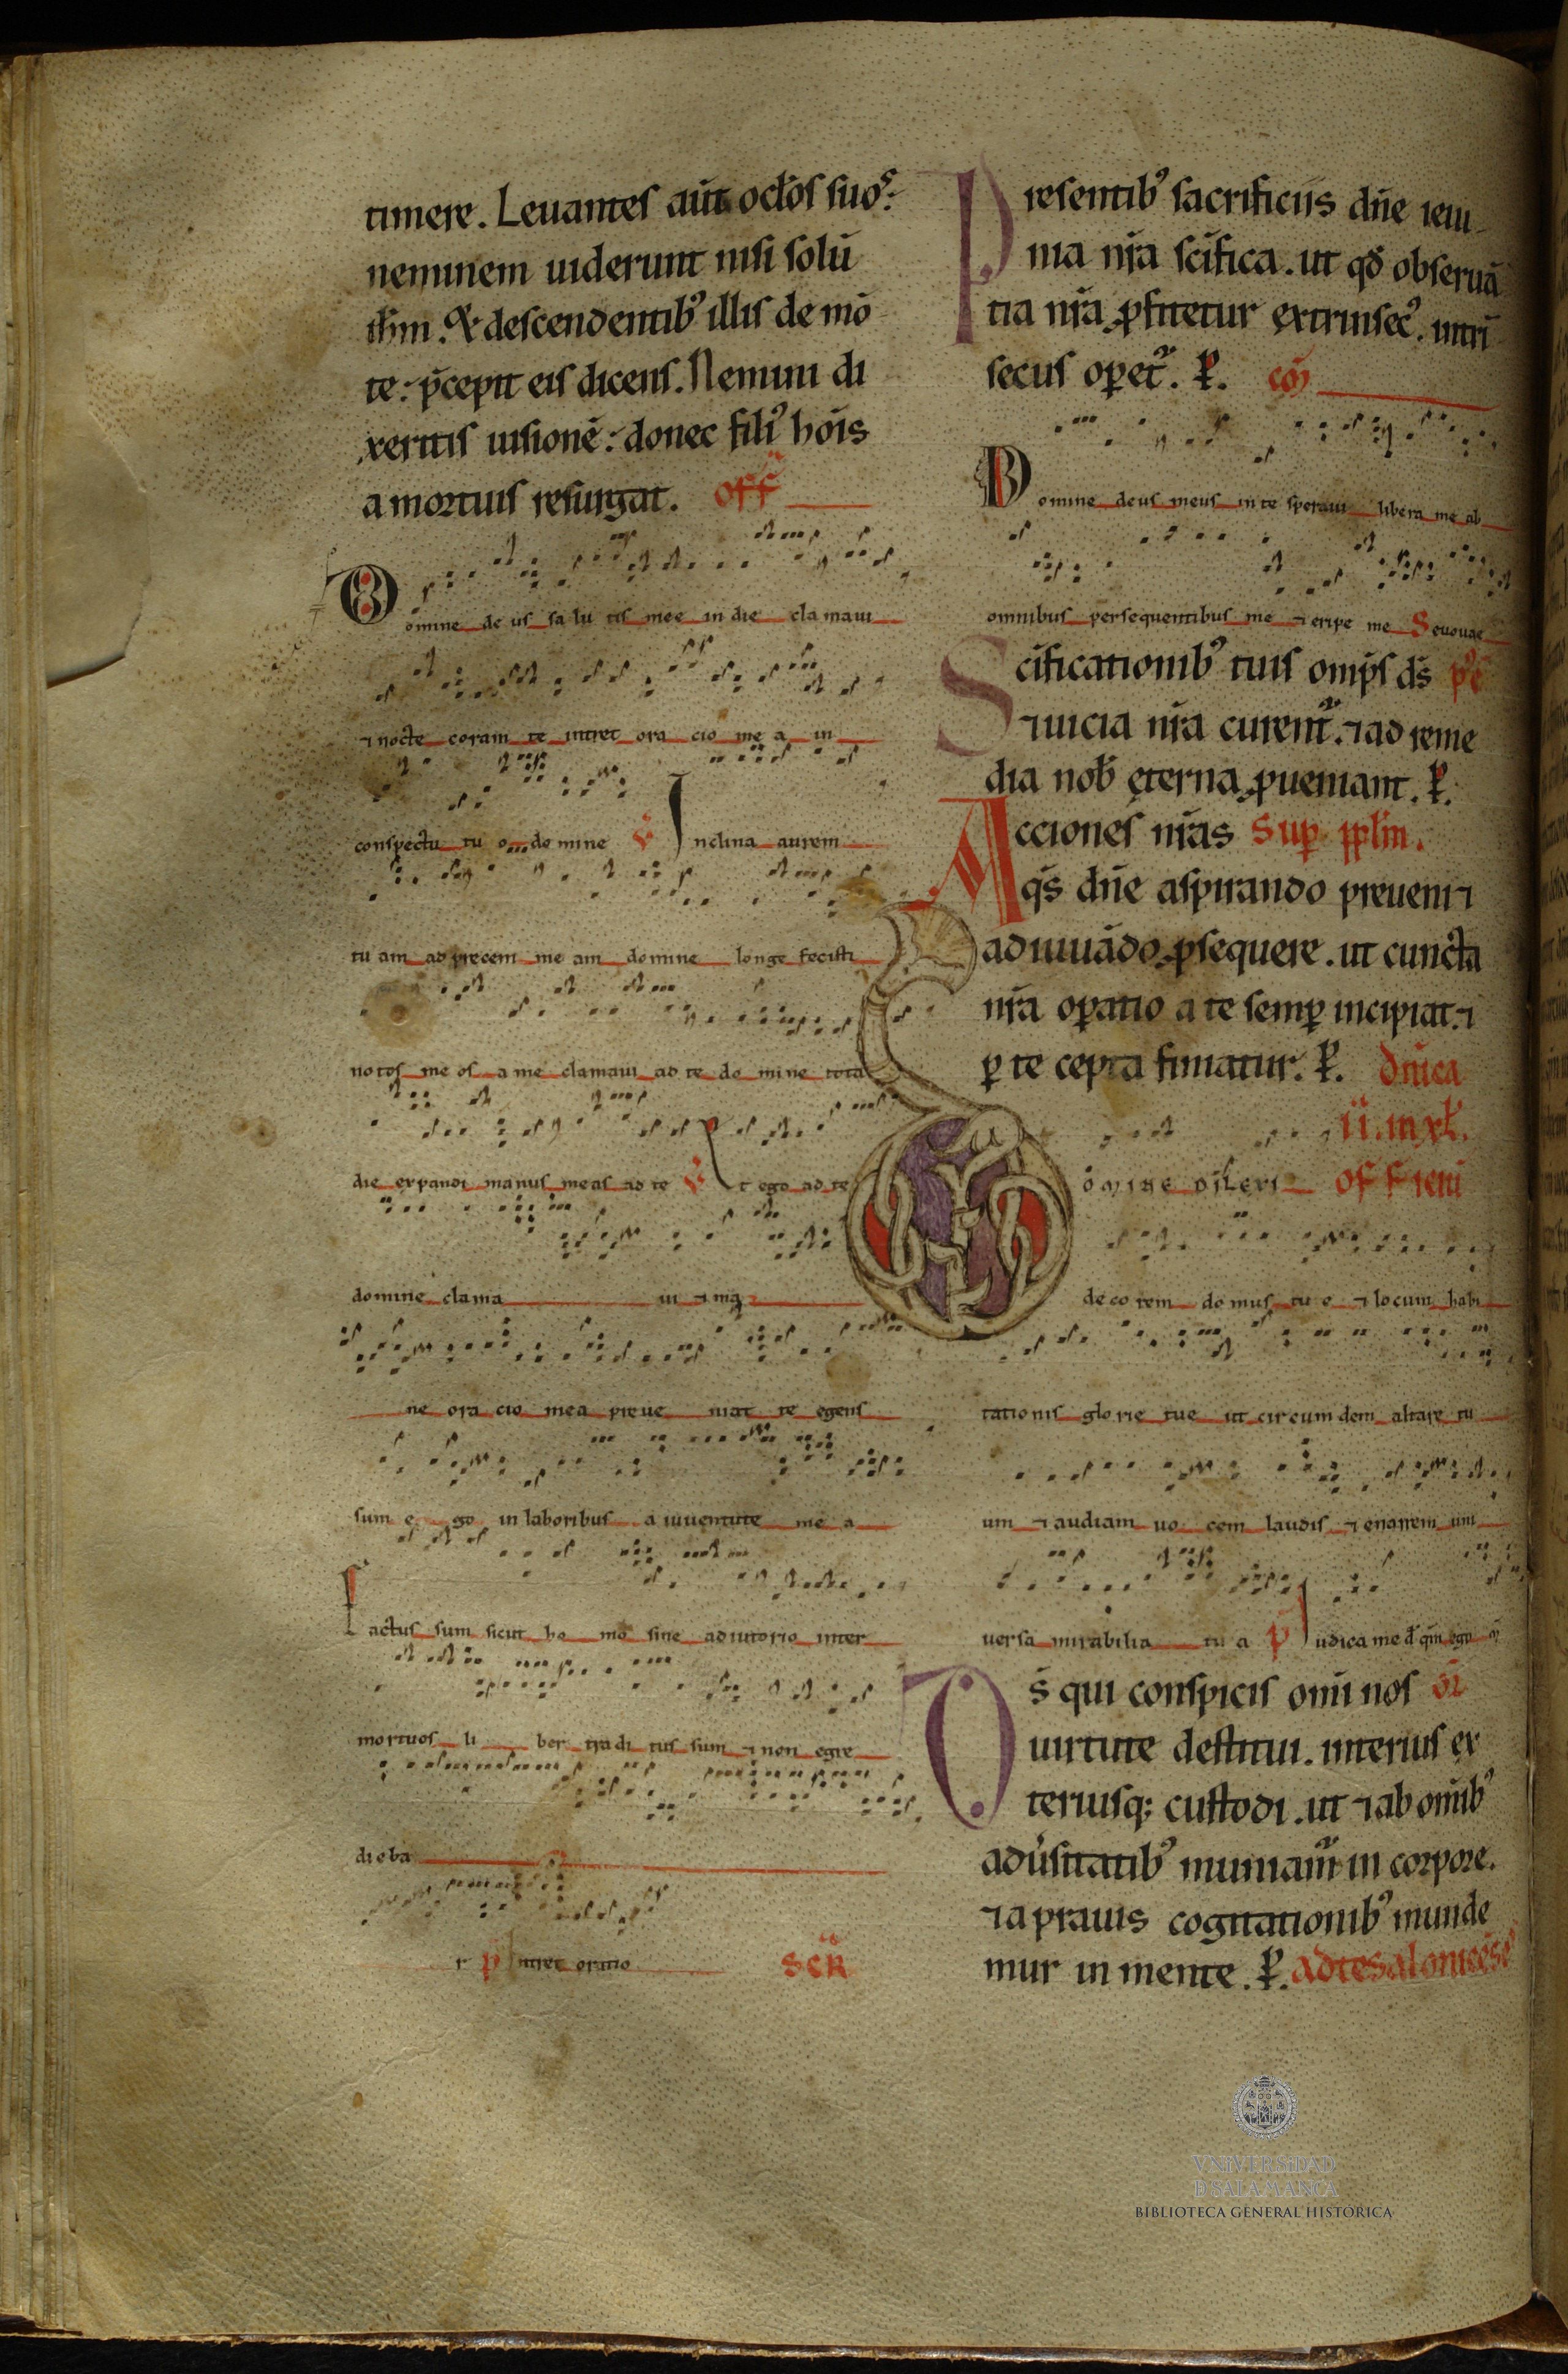 timere. Leuantes aūt ocl̄os suoˢ:
neminem uiderunt nisi solū
ih̄m. Et descendentib᷒ illis de mō
te: p̄cepit eis dicens. Nemini di
xeritis uisionē: donec fili᷒ hoīs
a mortuis resurgat. Off̄
Domine de us sa lu tis mee in die cla maui
⁊ nocte coram te intret ora cio me a in
conspectu tu o do mine v̄ Inclina aurem
tu am ad precem me am domine longe fecisti
notos me os a me clamaui ad te do mi ne tota
die expandi manus meas ad te v̄ Et ego ad te
domine clama ui ⁊ ma
ne ora cio mea preue niat te egens
sum e go in laboribus a iuuentute me a
Factus sum sicut ho mo sine adiutorio inter
mortuos li ber tradi tus sum ⁊ non egre
dieba
r p̄ Intret oratio Scr̄
Presentib᷒ sacrificiis dn̄e ieiu
nia nr̄a sc̄ifica. ut qd̄ obseruā
tia nr̄a ꝓfitetur extrinsec᷒. intrī
secus oꝑet᷑. ꝑ. cōm
Domine deus meus in te speraui libera me ab
omnibus persequentibus me ⁊ eripe me Seuouae
Sc̄ificationib᷒ tuis omp̄s ds̄ p᷒c̄
⁊ uicia nr̄a curent᷑. ⁊ ad reme
dia nob̄ eterna ꝓueniant. ꝑ.
Acciones nr̄as Suꝑ ppl̄m.
qs̄ dn̄e aspirando preueni ⁊
adiuuādo ꝓsequere. ut cuncta
nr̄a oꝑatio a te semꝑ incipiat. ⁊
ꝑ te cepta finiatur. ꝑ. Dn̄ica
ii. in xl̄.
Domine dilexi Off ieiū
decorem domus tu e ⁊ locum habi
tationis glorie tue ut circumdem altare tu
um ⁊ audiam uo cem laudis ⁊ enarrem uni
uersa mirabilia tu a p̄ Iudica me d̄ qm̄ ego
Ds̄ qui conspicis omī nos ōr
uirtute destitui. interius ex
teriusq; custodi. ut ⁊ ab omīb᷒
adu̓sitatib᷒ muniam᷑ in corpore.
⁊ a prauis cogitationib᷒ munde
mur in mente. ꝑ. ad tesalonicēse᷒
VNIVERSIDAD
D SALAMANCA
BIBLIOTECA GENERAL HISTÓRICA